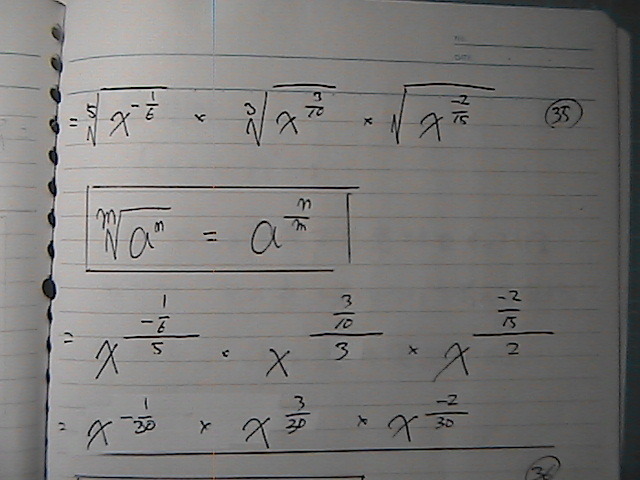 NO.
DATE
= ⁵√(x^(-1/6)) × ³√(x^(3/10)) × √(x^(-2/15)) (35)
ᵐ√(aⁿ) = a^(n/m)
= x^((-1/6)/5) · x^((3/10)/3) × x^((-2/15)/2)
= x^(-1/30) × x^(3/30) × x^(-2/30)